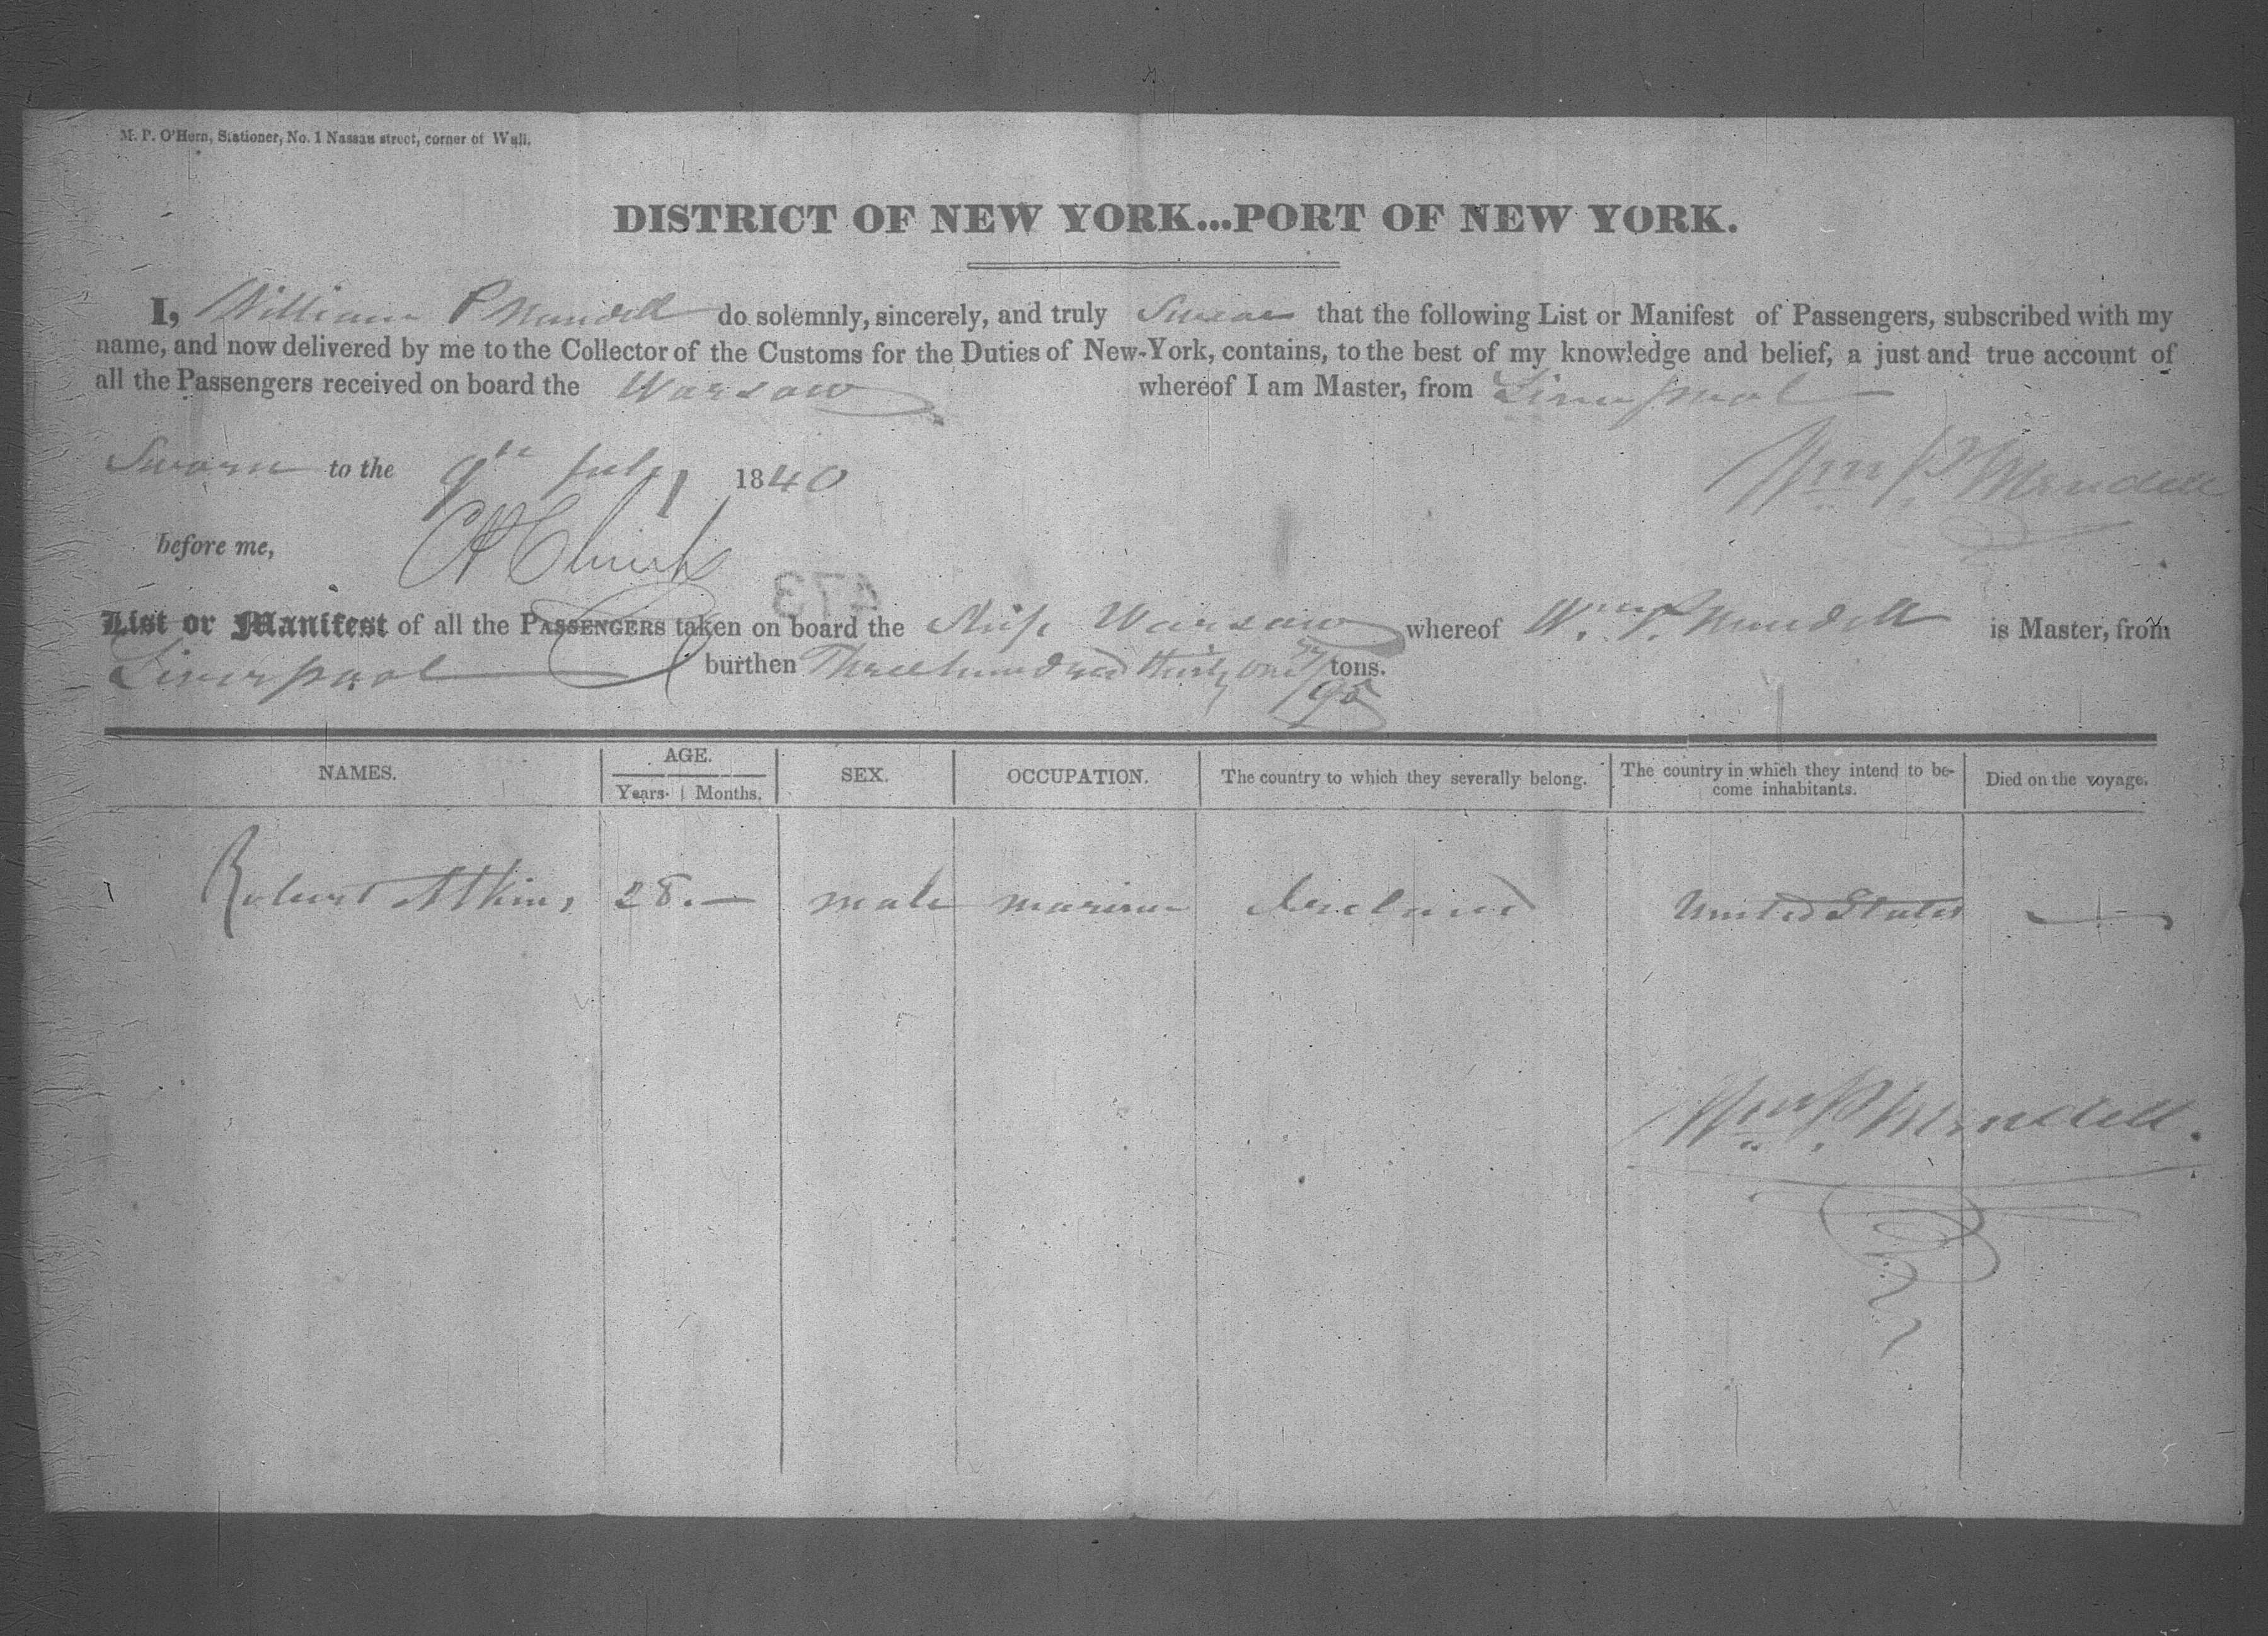 M. P. O'Hern, Stationer, No. 1 Nassau street, corner of Wall.
DISTRICT OF NEW YORK...PORT OF NEW YORK.
I, William P Mendell do solemnly, sincerely, and truly Swear that the following List or Manifest of Passengers, subscribed with my
name, and now delivered by me to the Collector of the Customs for the Duties of New-York, contains, to the best of my knowledge and belief, a just and true account of
all the Passengers received on board the Warsaw whereof I am Master, from Liverpool
Sworn to the 9th July 1840
Wm P Mendell
before me,
473
List or Manifest of all the PASSENGERS taken on board the Ship Warsaw whereof Wm P. Mendell is Master, from
Liverpool burthen Three hundred thirty one /95 tons.
NAMES. AGE. SEX. OCCUPATION. The country to which they severally belong. The country in which they intend to be- Died on the voyage.
Years. Months. come inhabitants.
Robert Atkins 28. — male mariner Ireland United States —
Wm P Mendell.